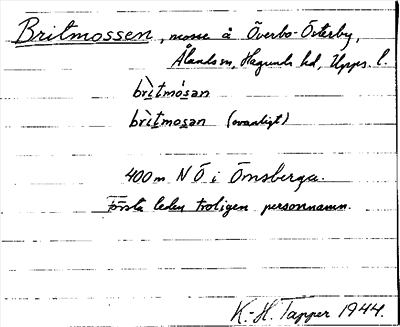 Britmossen, mosse å Överbo-Österby,
Ålands sn, Hagunda hd, Upps. l.
brìtmósan
brìtmosan (ovanligt)
400 m N Ö i Ömsberga.
Första leden troligen personnamn.
K.-H. Tapper 1944.